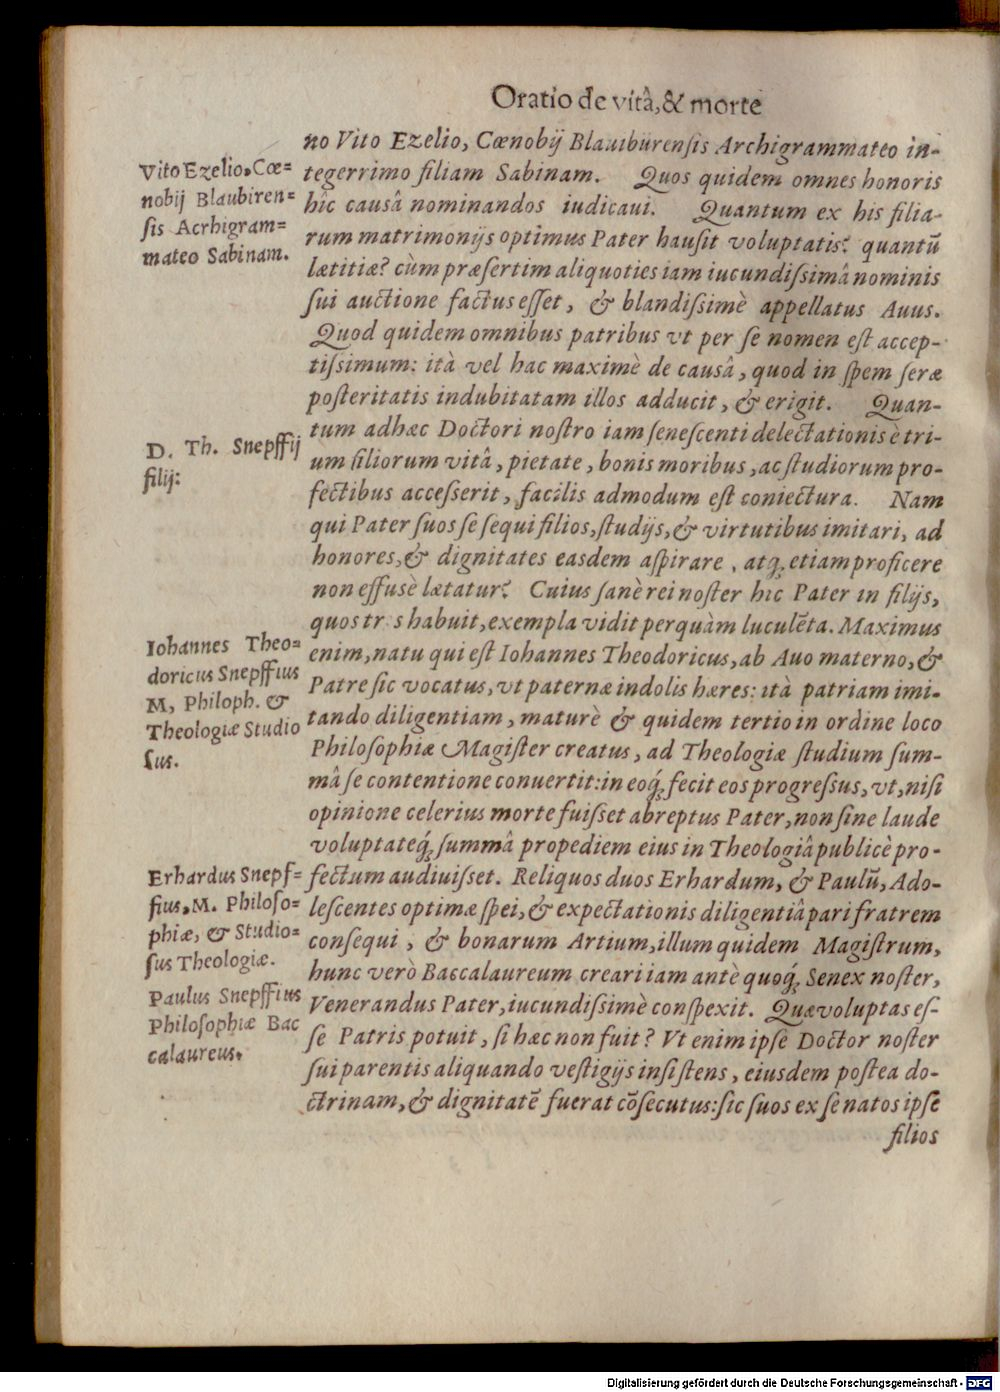 Oratio de vitâ, & morte
no Vito Ezelio, Cœnobij Blauiburensis Archigrammateo in-
tegerrimo filiam Sabinam. Quos quidem omnes honoris
hîc causâ nominandos iudicaui. Quantum ex his filia-
rum matrimonijs optimus Pater hausit voluptatis? quantũ
lætitiæ? cùm præsertim aliquoties iam iucundissimâ nominis
sui auctione factus esset, & blandissimè appellatus Auus.
Quod quidem omnibus patribus vt per se nomen est accep-
tissimum: ità vel hac maximè de causâ, quod in spem seræ
posteritatis indubitatam illos adducit, & erigit. Quan-
tum adhæc Doctori nostro iam senescenti delectationis è tri-
um filiorum vitâ, pietate, bonis moribus, ac studiorum pro-
fectibus accesserit, facilis admodum est coniectura. Nam
qui Pater suos se sequi filios, studijs, & virtutibus imitari, ad
honores, & dignitates easdem aspirare, atq; etiam proficere
non effusè lætatur? Cuius sanè rei noster hic Pater in filijs,
quos tr s habuit, exempla vidit perquàm luculẽta. Maximus
enim, natu qui est Iohannes Theodoricus, ab Auo materno, &
Patre sic vocatus, vt paternæ indolis hæres: ità patriam imi-
tando diligentiam, maturè & quidem tertio in ordine loco
Philosophiæ Magister creatus, ad Theologiæ studium sum-
mâ se contentione conuertit: in eoq́; fecit eos progressus, vt, nisi
opinione celerius morte fuisset abreptus Pater, non sine laude
voluptateq́; summâ propediem eius in Theologiâ publicè pro-
fectum audiuisset. Reliquos duos Erhardum, & Paulũ, Ado-
lescentes optimæ spei, & expectationis diligentiâ pari fratrem
consequi, & bonarum Artium, illum quidem Magistrum,
hunc verò Baccalaureum creari iam antè quoq́; Senex noster,
Venerandus Pater, iucundissimè conspexit. Quæ voluptas es-
se Patris potuit, si hæc non fuit? Vt enim ipse Doctor noster
sui parentis aliquando vestigijs insistens, eiusdem postea do-
ctrinam, & dignitatẽ fuerat cõsecutus: sic suos ex se natos ipse
filios
Vito Ezelio, Cœ=
nobij Blaubiren=
sis Acrhigram=
mateo Sabinam.
D. Th. Snepffij
filij:
Iohannes Theo=
doricus Snepffius
M, Philoph. &
Theologiæ Studio
sus.
Erhardus Snepf=
fius, M. Philoso=
phiæ, & Studio=
sus Theologiæ.
Paulus Snepffius
Philosophiæ Bac
calaureus.
Digitalisierung gefördert durch die Deutsche Forschungsgemeinschaft - DFG